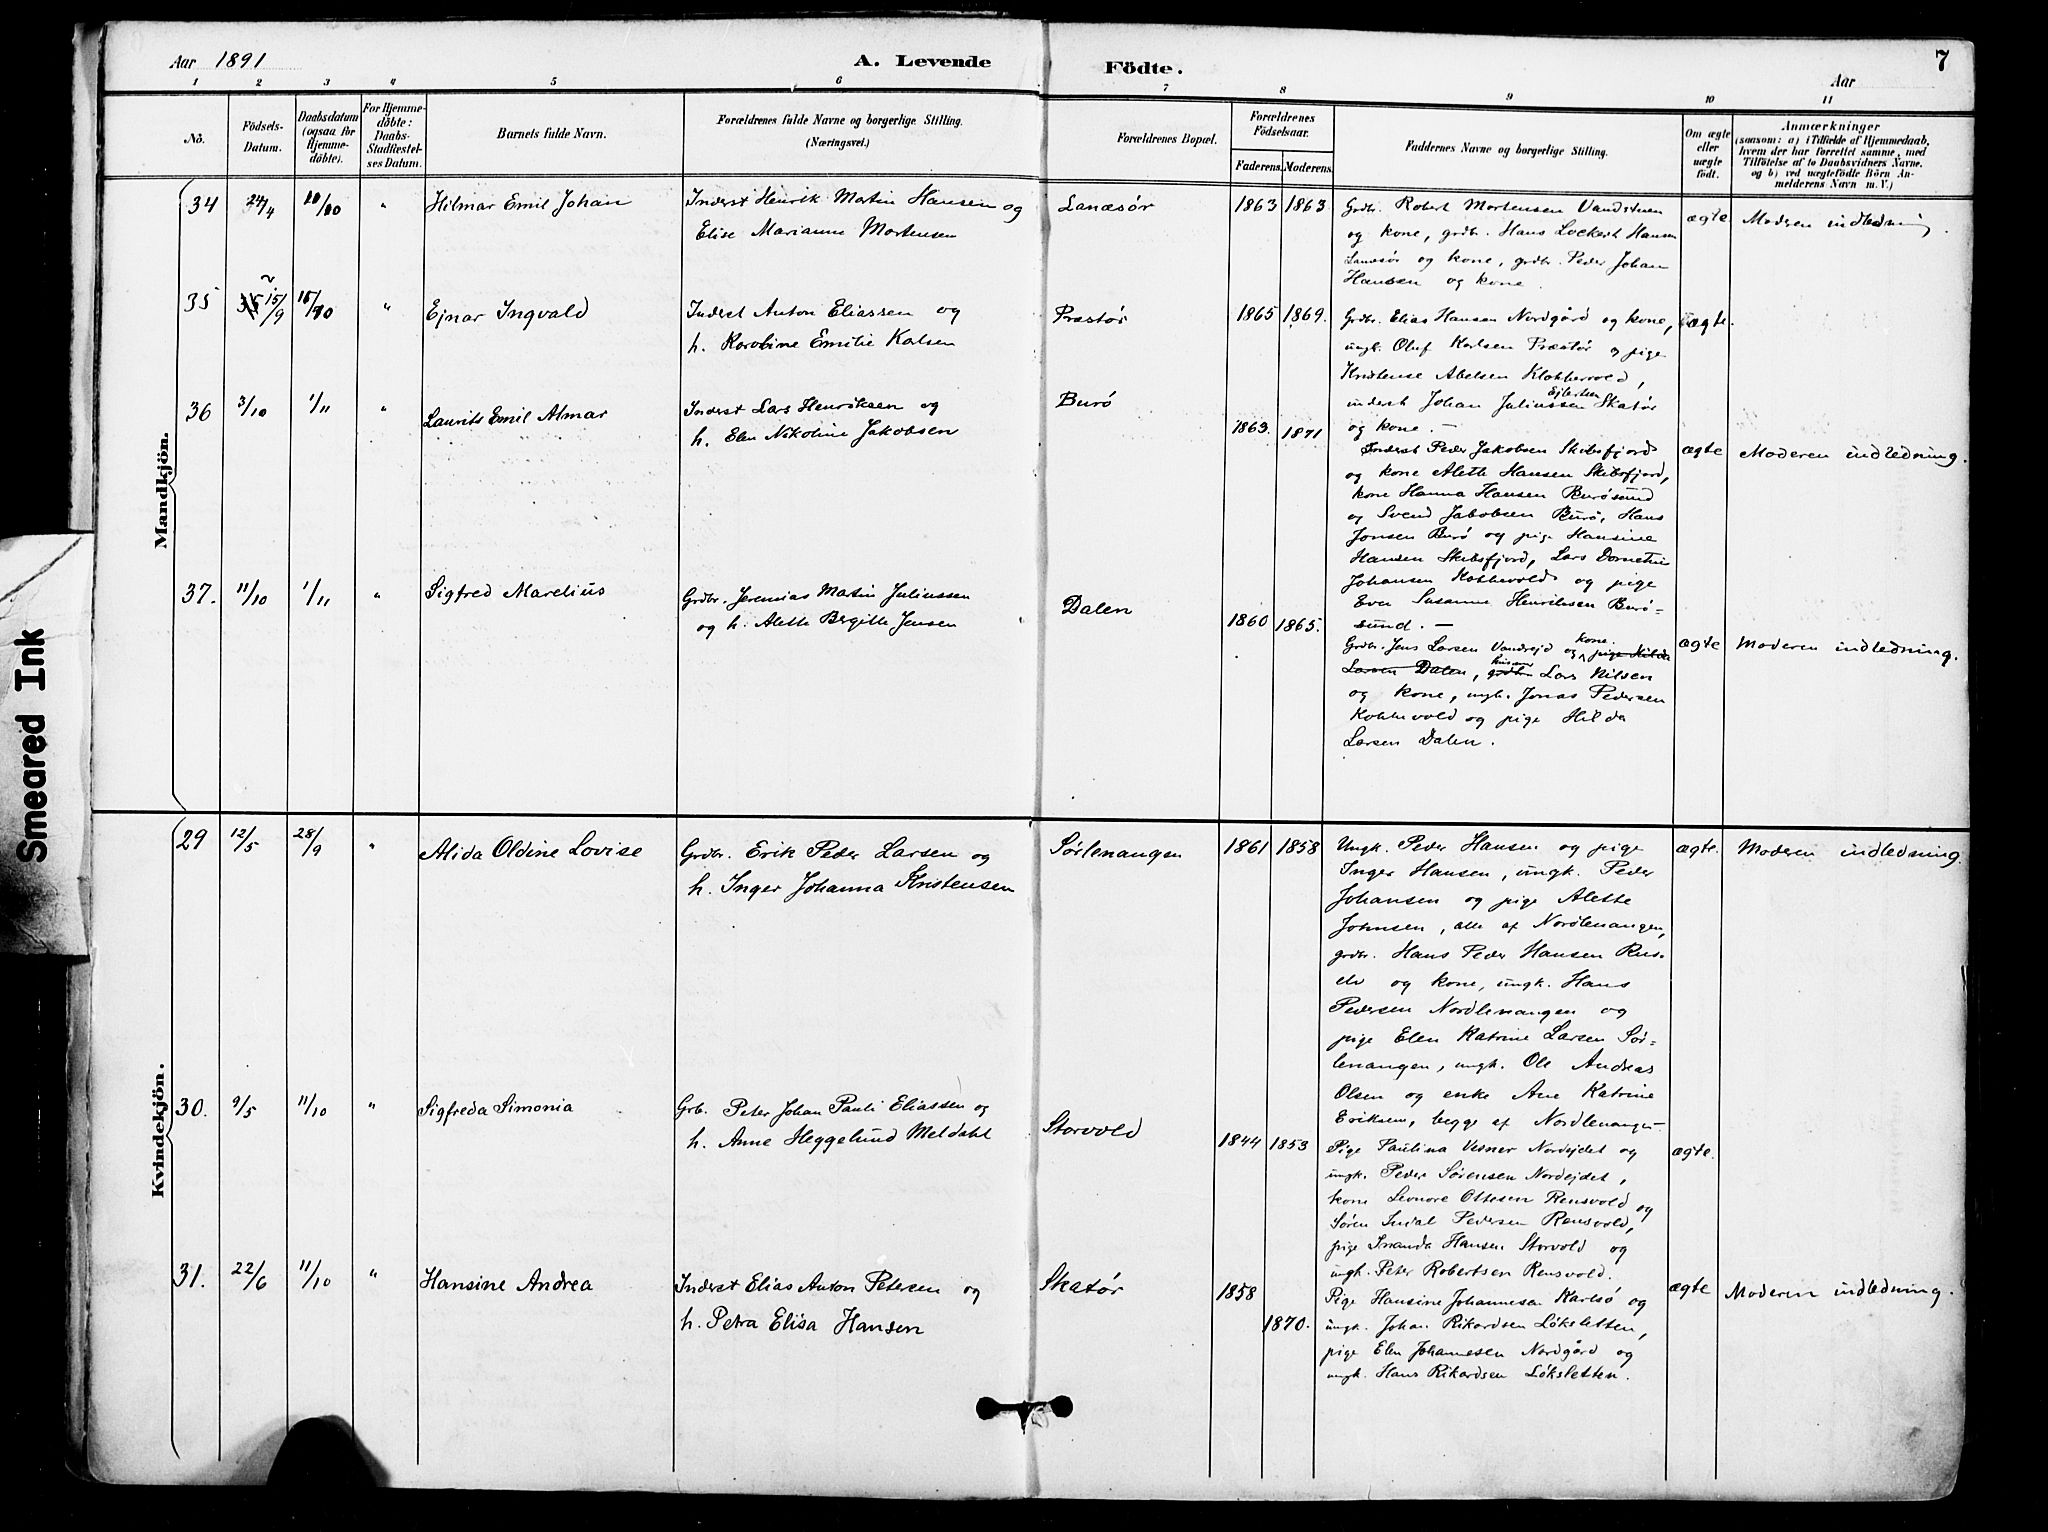 Aar 1891
A. Levende
Födte.
Aar
7
1 2 3 4 5 6 7 8 9 10 11
No.
Födsels-
Datum.
Daabsdatum
(ogsaa for
Hjemme-
döbte).
For Hjemme-
döbte:
Daabs-
Stadfæstel-
ses Datum.
Barnets fulde Navn.
Forældrenes fulde Navne og borgerlige Stilling.
(Næringsvei.)
Forældrenes Bopæl.
Forældrenes
Födselsaar.
Faderens. Moderens.
Faddernes Navne og borgerlige Stilling.
Om ægte
eller
uægte
födt.
Anmærkninger
(saasom: a) i Tilfælde af Hjemmedaab,
hvem der har forrettet samme, med
Tilföielse af to Daabsvidners Navne.
og b) ved uægtefödte Börn An-
melderens Navn m. V.)
Mandkjön.
34 24/4 /10 " Hilmar Emil Johan
Inderst Henrik Martin Hansen og
Elise Marianne Mortensen
Lanæsør
1863 1863
Grdbr. Robert Mortensen Vandstuen
og kone, grdbr. Hans Lockert Hansen
Lanæsør og kone, grdbr. Peder Johan
Hansen og kone
ægte
Moderen indledning.
35 15/9 /10 " Ejnar Ingvald
Inderst Anton Eliassen og
h. Karobine Emilie Kalsen
Præstør
1865 1869.
Grdbr. Elias Hansen Nordgård og kone,
ungk. Oluf Karlsen Præstør og pige
Kristense Abelsen Klokkervold,
inderst Johan Juliussen Ejlertsen Skatør
og kone. —
ægte.
36 3/10 1/11 " Laurits Emil Almar
Inderst Lars Henriksen og
h. Elen Nikoline Jakobsen
Burö
1863. 1871
Inderst Peder Jakobsen Skibsfjord
og kone Alette Hansen Skibsfjord,
kone Hanna Hansen Burösund
og Svend Jakobsen Burö, Hans
Jonsen Burö og pige Hansine
Hansen Skibsfjord, Lars
Johansen Kokkevold og pige
Eva Susanne Henriksen Burö-
sund. —
ægte
Moderen indledning.
37. 11/10 1/11 " Sigfred Marelius
Grdbr. Jeremias Martin Juliussen
og h. Alette Bergitte Jensen
Dalen
1860 1865.
Grdbr. Jens Larsen Vandrejd og kone. pige Hilda
Larsen Dalen, husm. grdbr. Lars Nilsen
og kone, ungk. Jonas Pedersen
Kokkevold og pige Hilda
Larsen Dalen.
ægte
Moderen indledning.
Kvindekjön.
29 12/5 28/9 " Alida Oldine Lovise
Grdbr. Erik Peder Larsen og
h. Inger Johanna Kristensen
Sørlenangen
1861 1858
Ungk. Peder Hansen og pige
Inger Hansen, ungk. Peder
Johansen og pige Alette
Johnsen, alle af Nordlenangen,
grdbr. Hans Peder Hansen Rus-
elv og kone, ungk. Hans
Pedersen Nordlenangen og
pige Elen Katrine Larsen Sør-
lenangen, ungk. Ole Andreas
Olsen og enke Ane Katrine
Eriksen, begge af Nordlenangen
ægte.
Moderen indledning.
30. 9/5 11/10 " Sigfreda Simonia
Grb. Peter Johan Pauli Eliassen og
h. Anne Heggelund Meldahl
Storvold
1844 1853
Pige Paulina Vesner Nordejdet og
ungk. Peder Sørensen Nordejdet,
kone Leonore Ottesen Rensvold og
Søren Indal Pedersen Rensvold,
pige Inanda Hansen Storvold og
ungk. Peter Robertsen Rensvold.
ægte.
31. 22/6 11/10 " Hansine Andrea
Inderst Elias Anton Petersen og
h. Petra Elisa Hansen
Skatør
1858 1870.
Pige Hansine Johannesen Karlsö og
ungk. Johan Rikardsen Lökslatten,
pige Elen Johannesen Nordgård og
ungk. Hans Rikardsen Löksletten.
ægte
Moderen indledning.
Smeared Ink